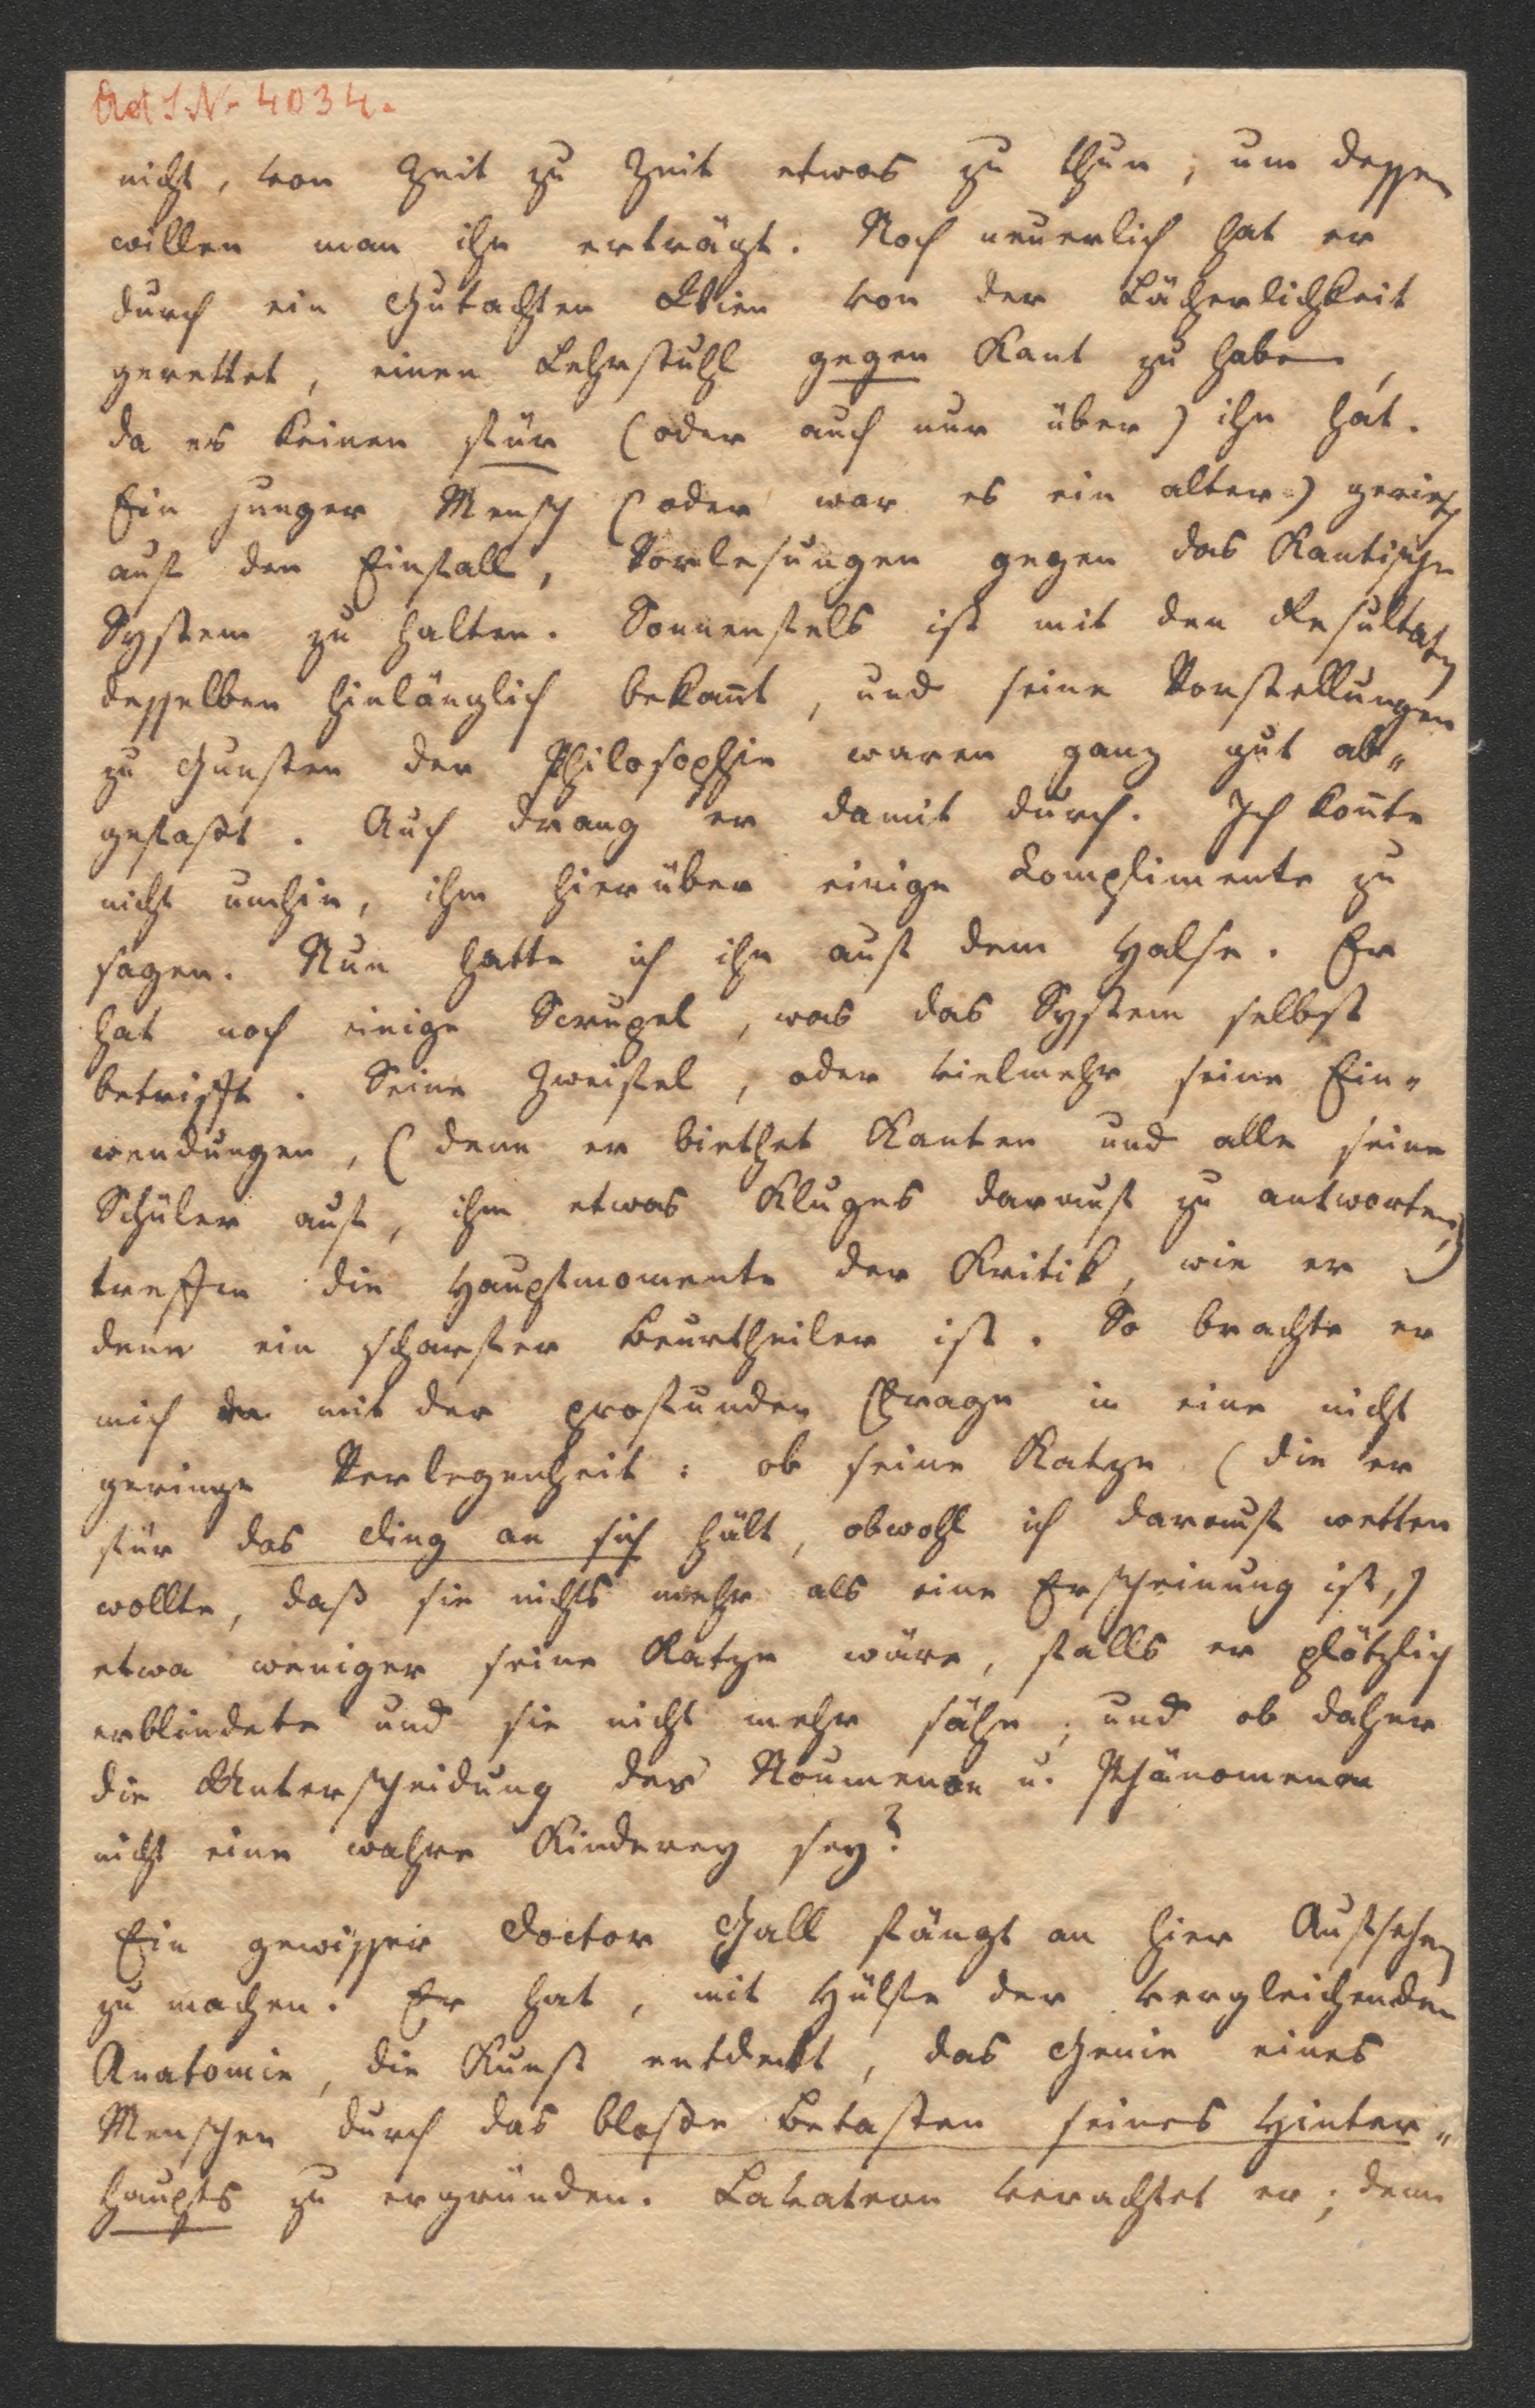 Ad I.N. 4034.
nicht, von Zeit zu Zeit etwas zu thun, um dessen
willen man ihn erträgt. Noch neuerlich hat er
durch ein Gutachten Wien von der Lächerlichkeit
gerettet, einen Lehrstuhl gegen Kant zu haben,
da es keinen für (oder auch nur über) ihn hat.
Ein junger Mensch (oder war es ein alter?) gerieth
auf den Einfall, Vorlesungen gegen das Kantische
System zu halten. Sonnenfels ist mit den Resultaten
desselben hinlänglich bekañt, und seine Vorstellungen
zu Gunsten der Philosophie waren ganz gut ab„
gefaßt. Auch drang er damit durch. Ich koñte
nicht umhin, ihm hierüber einige Complimente zu
sagen. Nun hatte ich ihn auf dem Halse. Er
hat noch einige Scrupel, was das System selbst
betrifft. Seine Zweifel, oder vielmehr seine Ein„
wendungen, (denn er biethet Kanten und alle seine
Schüler auf, ihm etwas Kluges darauf zu antworten,)
treffen die Hauptmomente der Kritik, wie er
denn ein scharfer Beurtheiler ist. So brachte er
mich mit der profunden Frage in eine nicht
geringe Verlegenheit: ob seine Katze (die er
für das Ding an sich hält, obwohl ich darauf wetten
wollte, daß sie nichts mehr als eine Erscheinung ist,)
etwa weniger seine Katze wäre, falls er plötzlich
erblindete und sie nicht mehr sähe; und ob daher
die Unterscheidung der Noumenen u. Phänomenen
nicht eine wahre Kinderey sey?
Ein gewisser Doctor Gall fängt an hier Aufsehen
zu machen. Er hat, mit Hülfe der vergleichenden
Anatomie, die Kunst entdeckt, das Genie eines
Menschen durch das bloße Betasten seines Hinter„
haupts zu ergründen. Lavatern verachtet er; denn